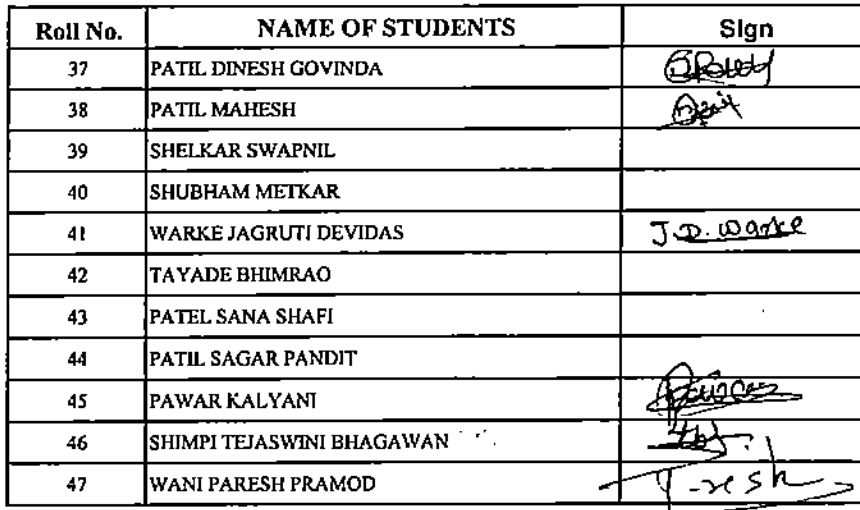 Roll No. NAME OF STUDENTS Sign
37 PATIL DINESH GOVINDA
38 PATIL MAHESH
39 SHELKAR SWAPNIL
40 SHUBHAM METKAR
41 WARKE JAGRUTI DEVIDAS J.D. Warke
42 TAYADE BHIMRAO
43 PATEL SANA SHAFI
44 PATIL SAGAR PANDIT
45 PAWAR KALYANI
46 SHIMPI TEJASWINI BHAGAWAN
47 WANI PARESH PRAMOD